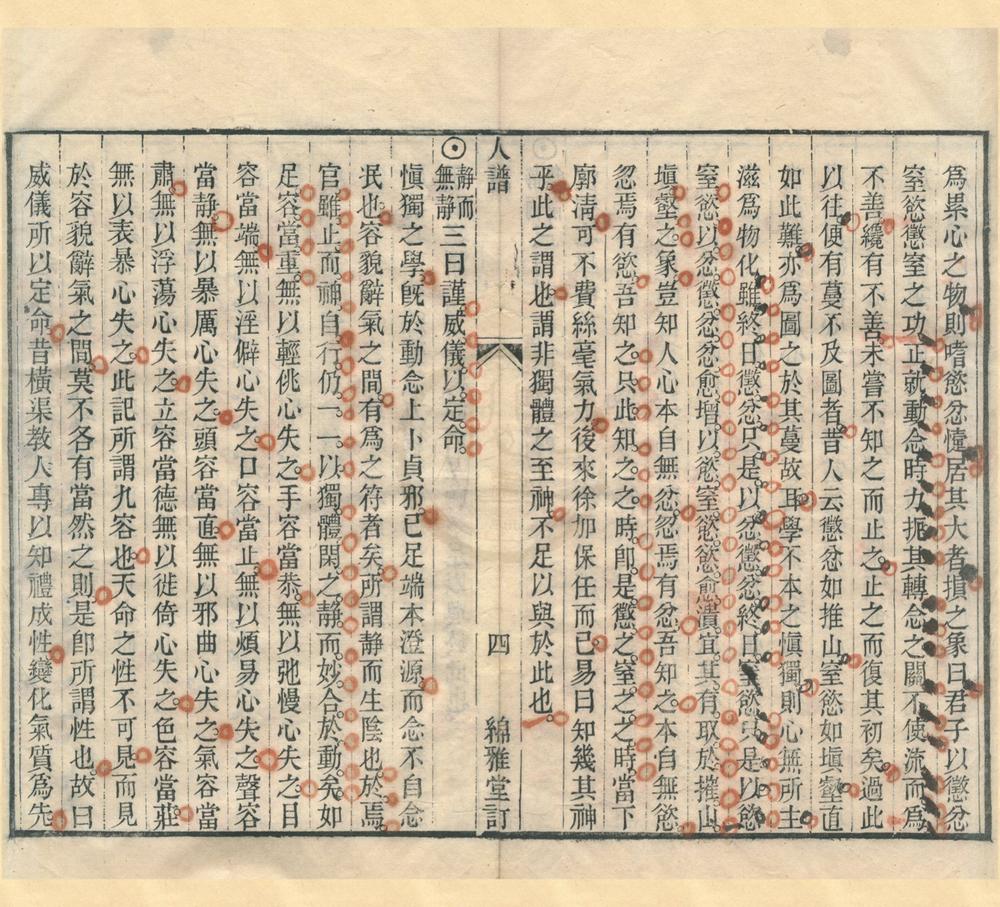 為累心之物則嗜慾忿懥居其大者損之象曰君子以懲忿
窒慾懲窒之功正就動念時力扼其轉念之關不使流而為
不善纔有不善未嘗不知之而止之止之而復其初矣過此
以往便有蔓不及圖者昔人云懲忿如推山窒慾如塡壑直
如此難亦為圖之於其蔓故耳學不本之愼獨則心無所主
滋為物化雖終日懲忿只是以忿懲忿終日窒慾只是以慾
窒慾以忿懲忿忿愈增以慾窒慾慾愈潰宜其有取於摧山
塡壑之象豈知人心本自無忿忽焉有忿吾知之本自無慾
忽焉有慾吾知之只此知之之時卽是懲之窒之之時當下
廓清可不費絲毫氣力後來徐加保任而已易曰知幾其神
乎此之謂也謂非獨體之至神不足以與於此也
人譜 四 綿雅堂訂
靜而無靜 三曰謹威儀以定命
愼獨之學旣於動念上卜貞邪已足端本澄源而念不自念
泯也容貌辭氣之間有為之符者矣所謂靜而生陰也於焉
官雖止而神自行仍一一以獨體閑之靜而妙合於動矣如
足容當重無以輕佻心失之手容當恭無以弛慢心失之目
容當端無以淫僻心失之口容當止無以煩易心失之聲容
當靜無以暴厲心失之頭容當直無以邪曲心失之氣容當
肅無以浮蕩心失之立容當德無以徙倚心失之色容當莊
無以表暴心失之此記所謂九容也天命之性不可見而見
於容貌辭氣之間莫不各有當然之則是卽所謂性也故曰
威儀所以定命昔橫渠敎人專以知禮成性變化氣質為先